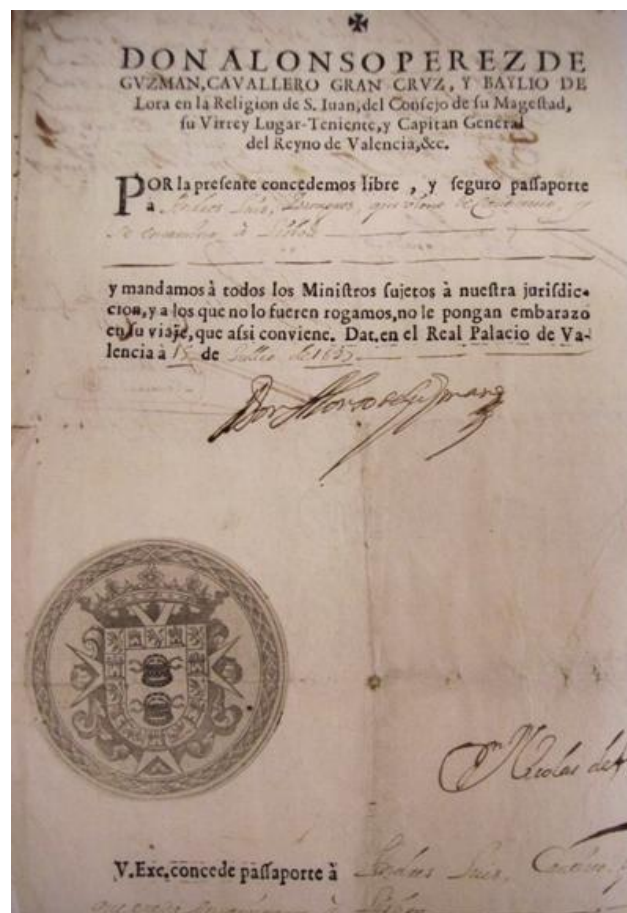 DON ALONSO PEREZ DE
GVZMAN, CAVALLERO GRAN CRVZ, Y BAYLIO DE
Lora en la Religion de S. Iuan, del Conſejo de ſu Mageſtad,
ſu Virrey Lugar-Teniente, y Capitan General
del Reyno de Valencia, &c.
POR la preſente concedemos libre , y ſeguro paſſaporte
a Andres Luis, que de y
Se à Lisboa
y mandamos à todos los Miniſtros ſujetos à nueſtra juriſdic-
cion, y a los que no lo fueren rogamos, no le pongan embarazo
en ſu viaje, que aſsi conviene. Dat. en el Real Palacio de Va-
lencia à 15 de Julio de
Don Alonso de Guzman
Nicolas de
V. Exc. concede paſſaporte à Andres Luis,
que à Lisboa